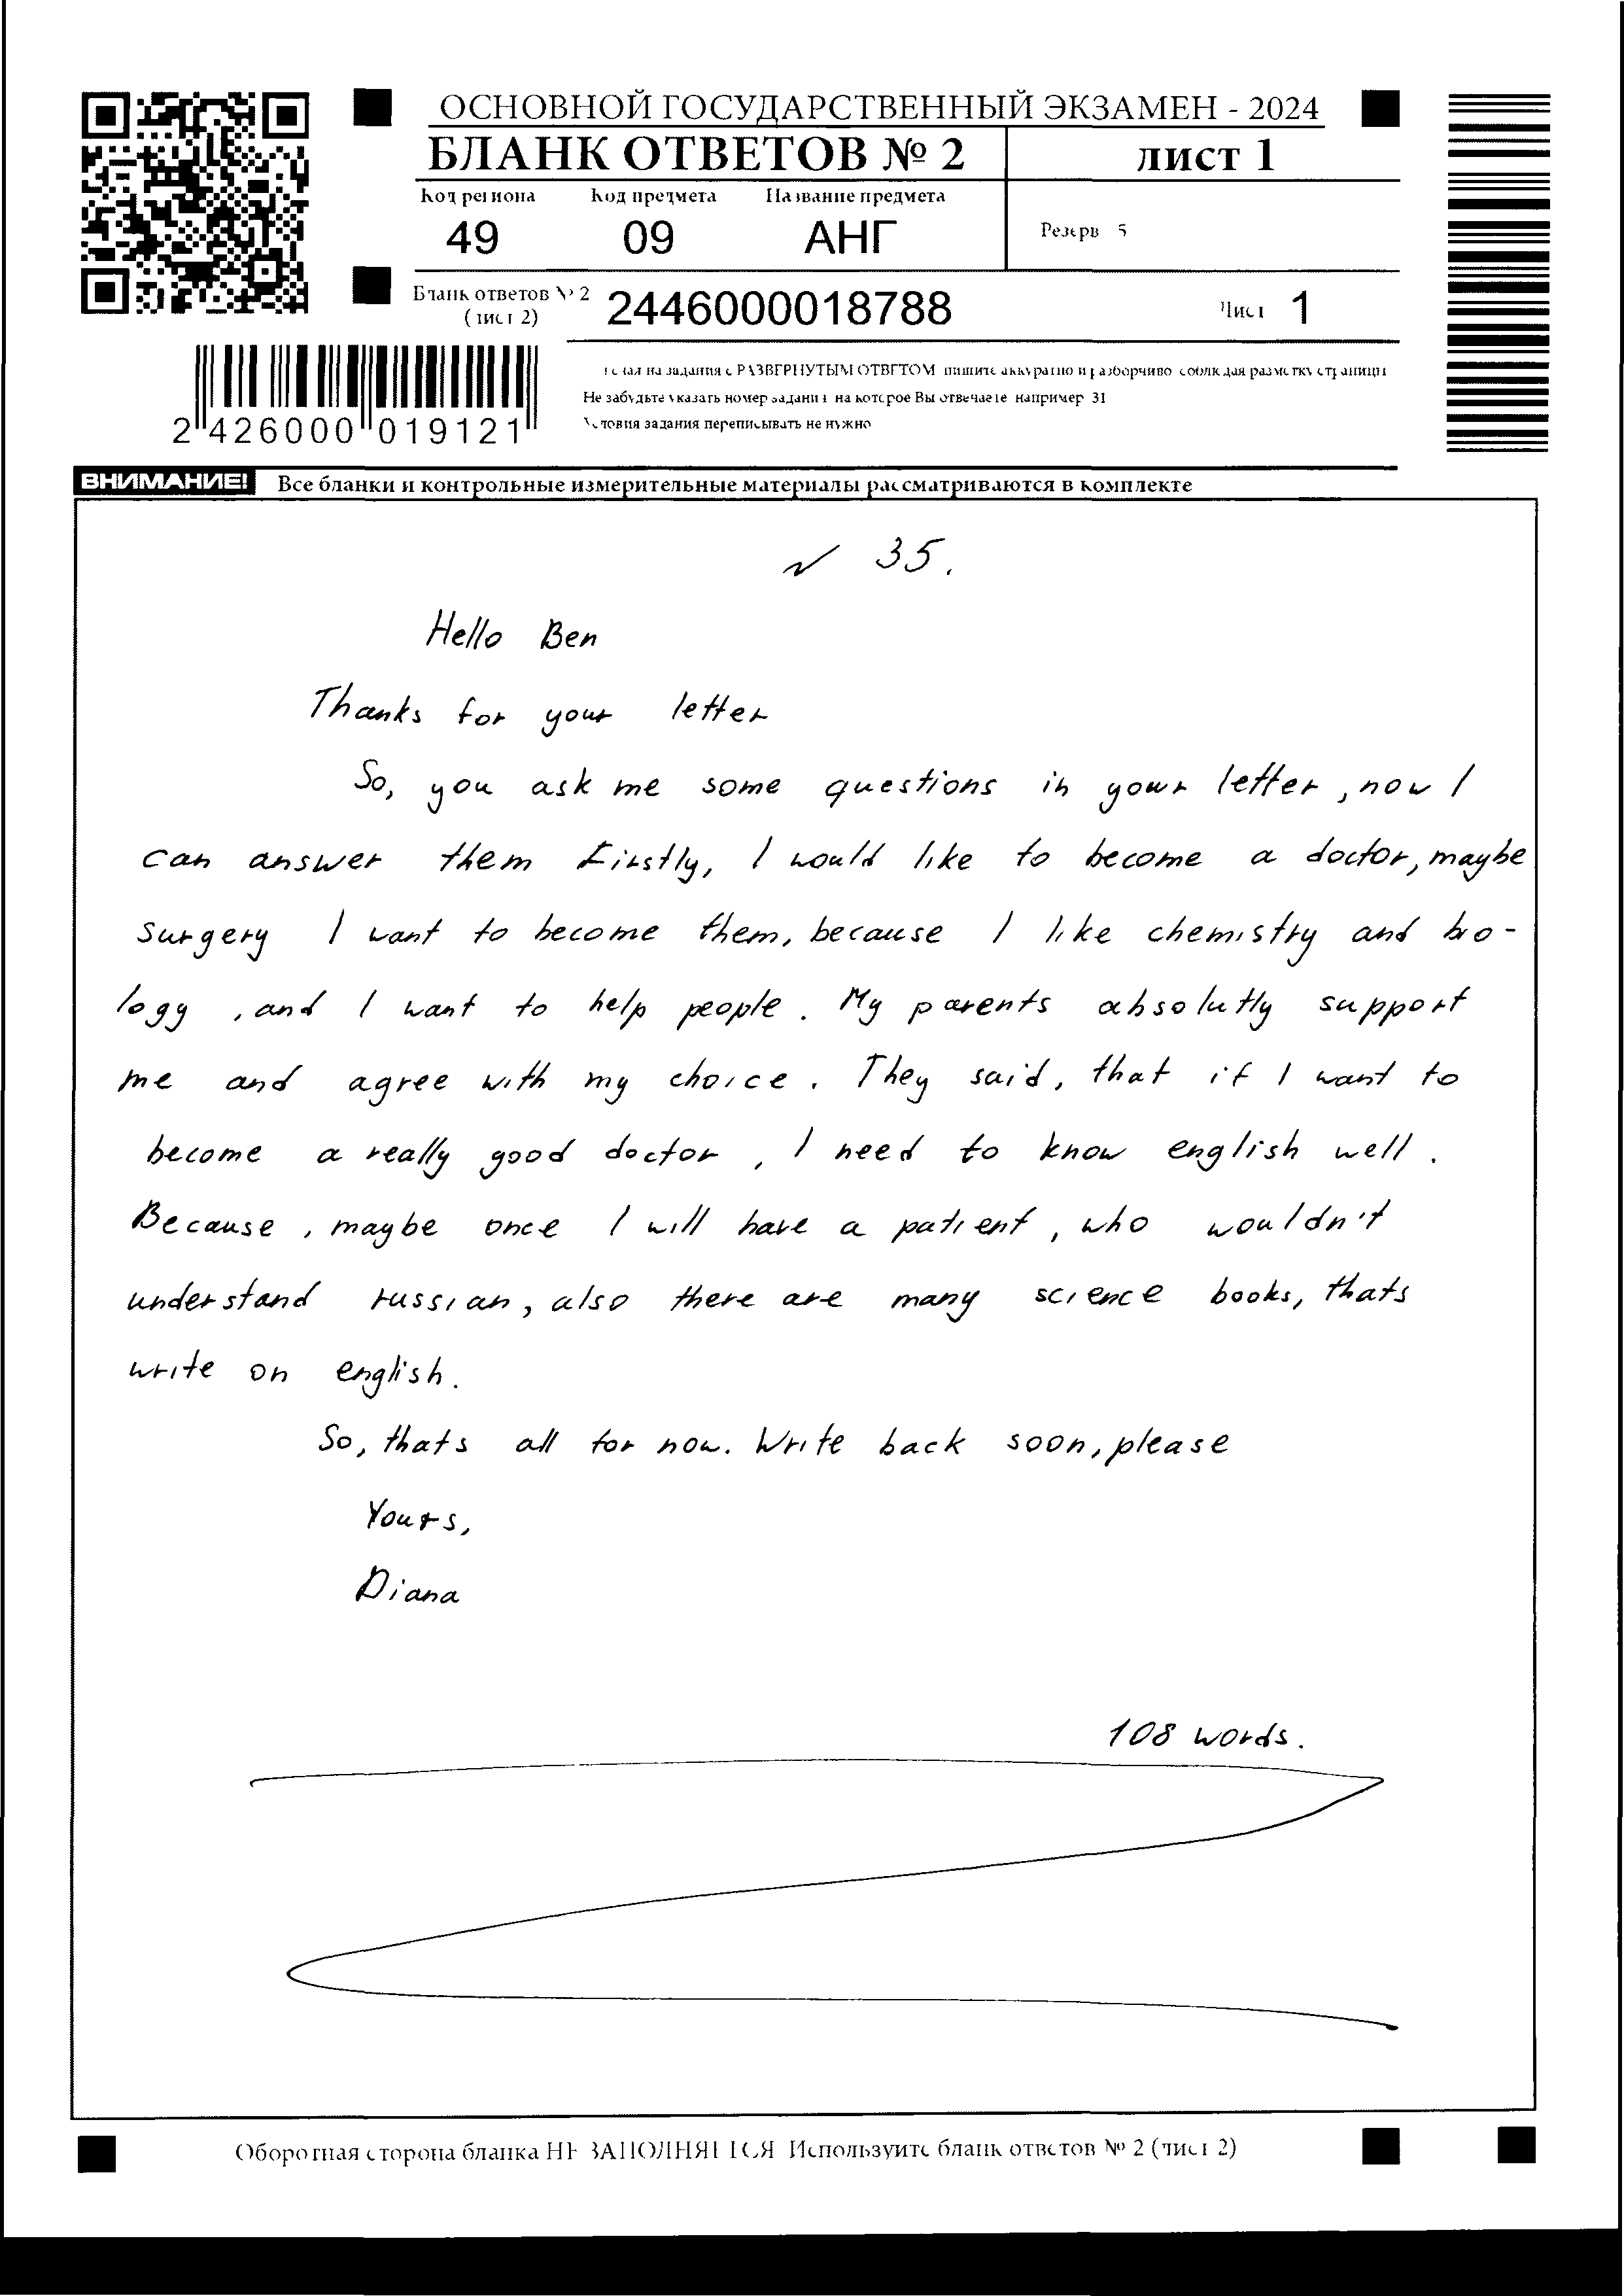 ОСНОВНОЙ ГОСУДАРСТВЕННЫЙ ЭКЗАМЕН - 2024
БЛАНК ОТВЕТОВ № 2
ЛИСТ 1
Код региона Код предмета Название предмета
49 09 АНГ
Резерв 5
Бланк ответов № 2
(лист 2)
2446000018788
Лист 1
2 426000 019121
на задания с РАЗВЕРНУТЫМ ОТВЕТОМ пишите аккуратно и разборчиво соблюдая разметку страницы
Не забудьте указать номер задания на которое Вы отвечаете например 31
Условия задания переписывать не нужно
ВНИМАНИЕ! Все бланки и контрольные измерительные материалы рассматриваются в комплекте
№ 35.
Hello Ben
Thanks for your letter
So, you ask me some questions in your letter, now I
can answer them Firstly, I would like to become a doctor, maybe
surgery I want to become them, because I like chemistry and bio-
logy, and I want to help people. My parents absolutly support
me and agree with my choice. They said, that if I want to
become a really good doctor, I need to know english well.
Because, maybe once I will have a patient, who wouldn't
understand russian, also there are many science books, thats
write on english.
So, thats all for now. Write back soon, please
Yours,
Diana
108 words.
Оборотная сторона бланка НЕ ЗАПОЛНЯЕТСЯ Используйте бланк ответов № 2 (лист 2)